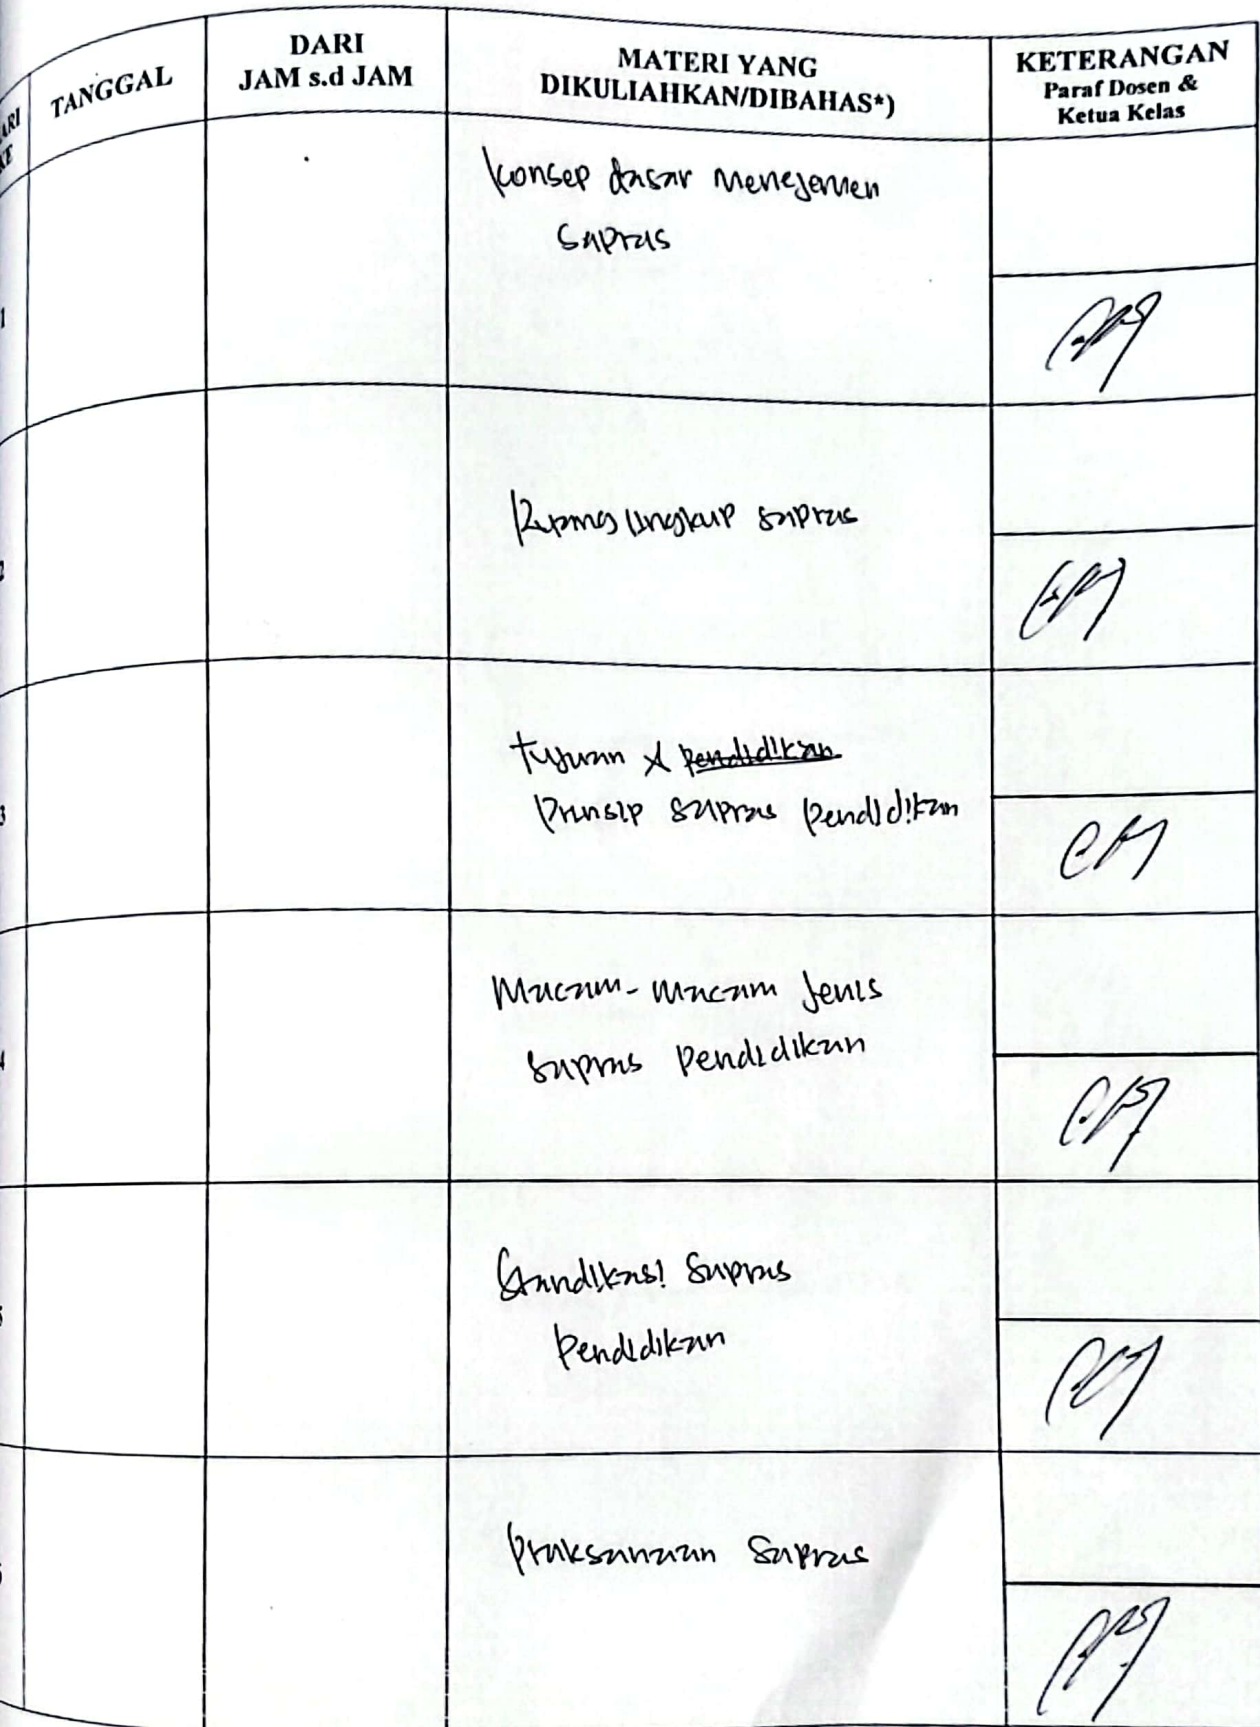 ARI
KE
TANGGAL
DARI
JAM s.d JAM
MATERI YANG
DIKULIAHKAN/DIBAHAS*)
KETERANGAN
Paraf Dosen &
Ketua Kelas
1
Konsep dasar Menejemen
Sapras
2
Ruang lingkup sapras
3
Tujuan & pendidikan
Prinsip sapras pendidikan
4
Macam-macam Jenis
sapras Pendidikan
5
Standikasi Sapras
Pendidikan
Praksanaan Sapras